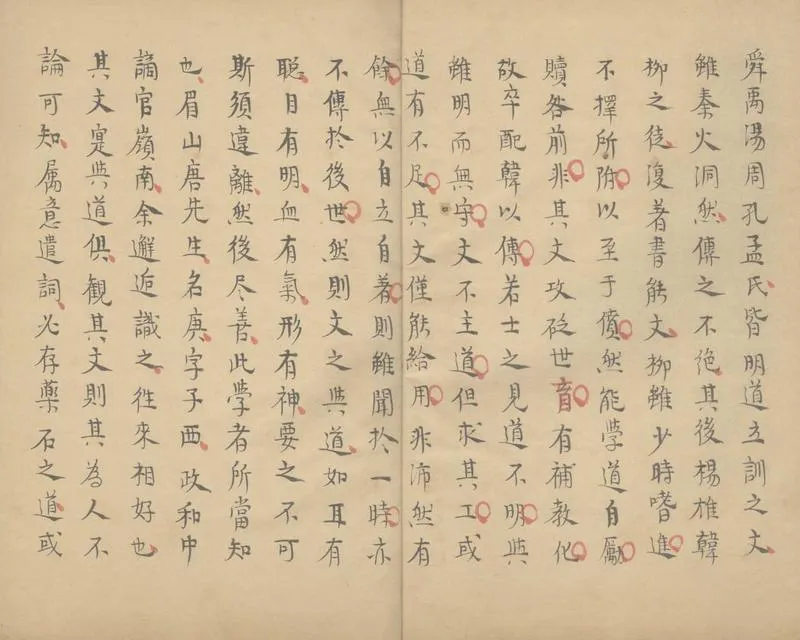 舜禹湯周孔孟氏皆明道立訓之文
雖秦火洞然傳之不絶其後楊雄韓
柳之徒復著書能文柳雖少時嗜進
不擇所附以至于僨然能學道自勵
贖咎前非其文攻砭世盲有補教化
故卒配韓以傳若士之見道不明與
雖明而無守文不主道但求其工或
道有不足其文僅能給用非沛然有
餘無以自立自著則雖聞於一時亦
不傳於後世然則文之與道如耳有
聡目有明血有氣形有神要之不可
斯須違離然後尽善此學者所當知
也眉山唐先生名庚字子西政和中
謫官嶺南余邂逅識之徃來相好也
其文寔與道俱觀其文則其為人不
論可知属意遣詞必存藥石之道或